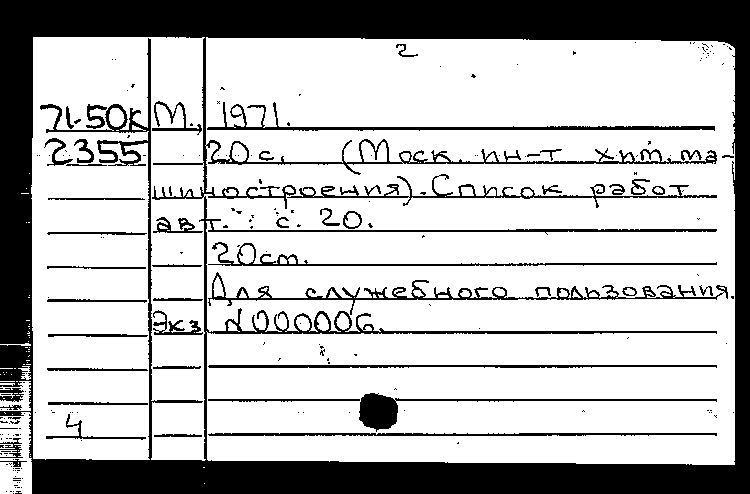 2
71-50К М., 1971.
2355 20 с. (Моск. ин-т хим. ма-
шиностроения). Список работ
авт.: с. 20.
20 см.
Для служебного пользования.
Экз N000006.
4